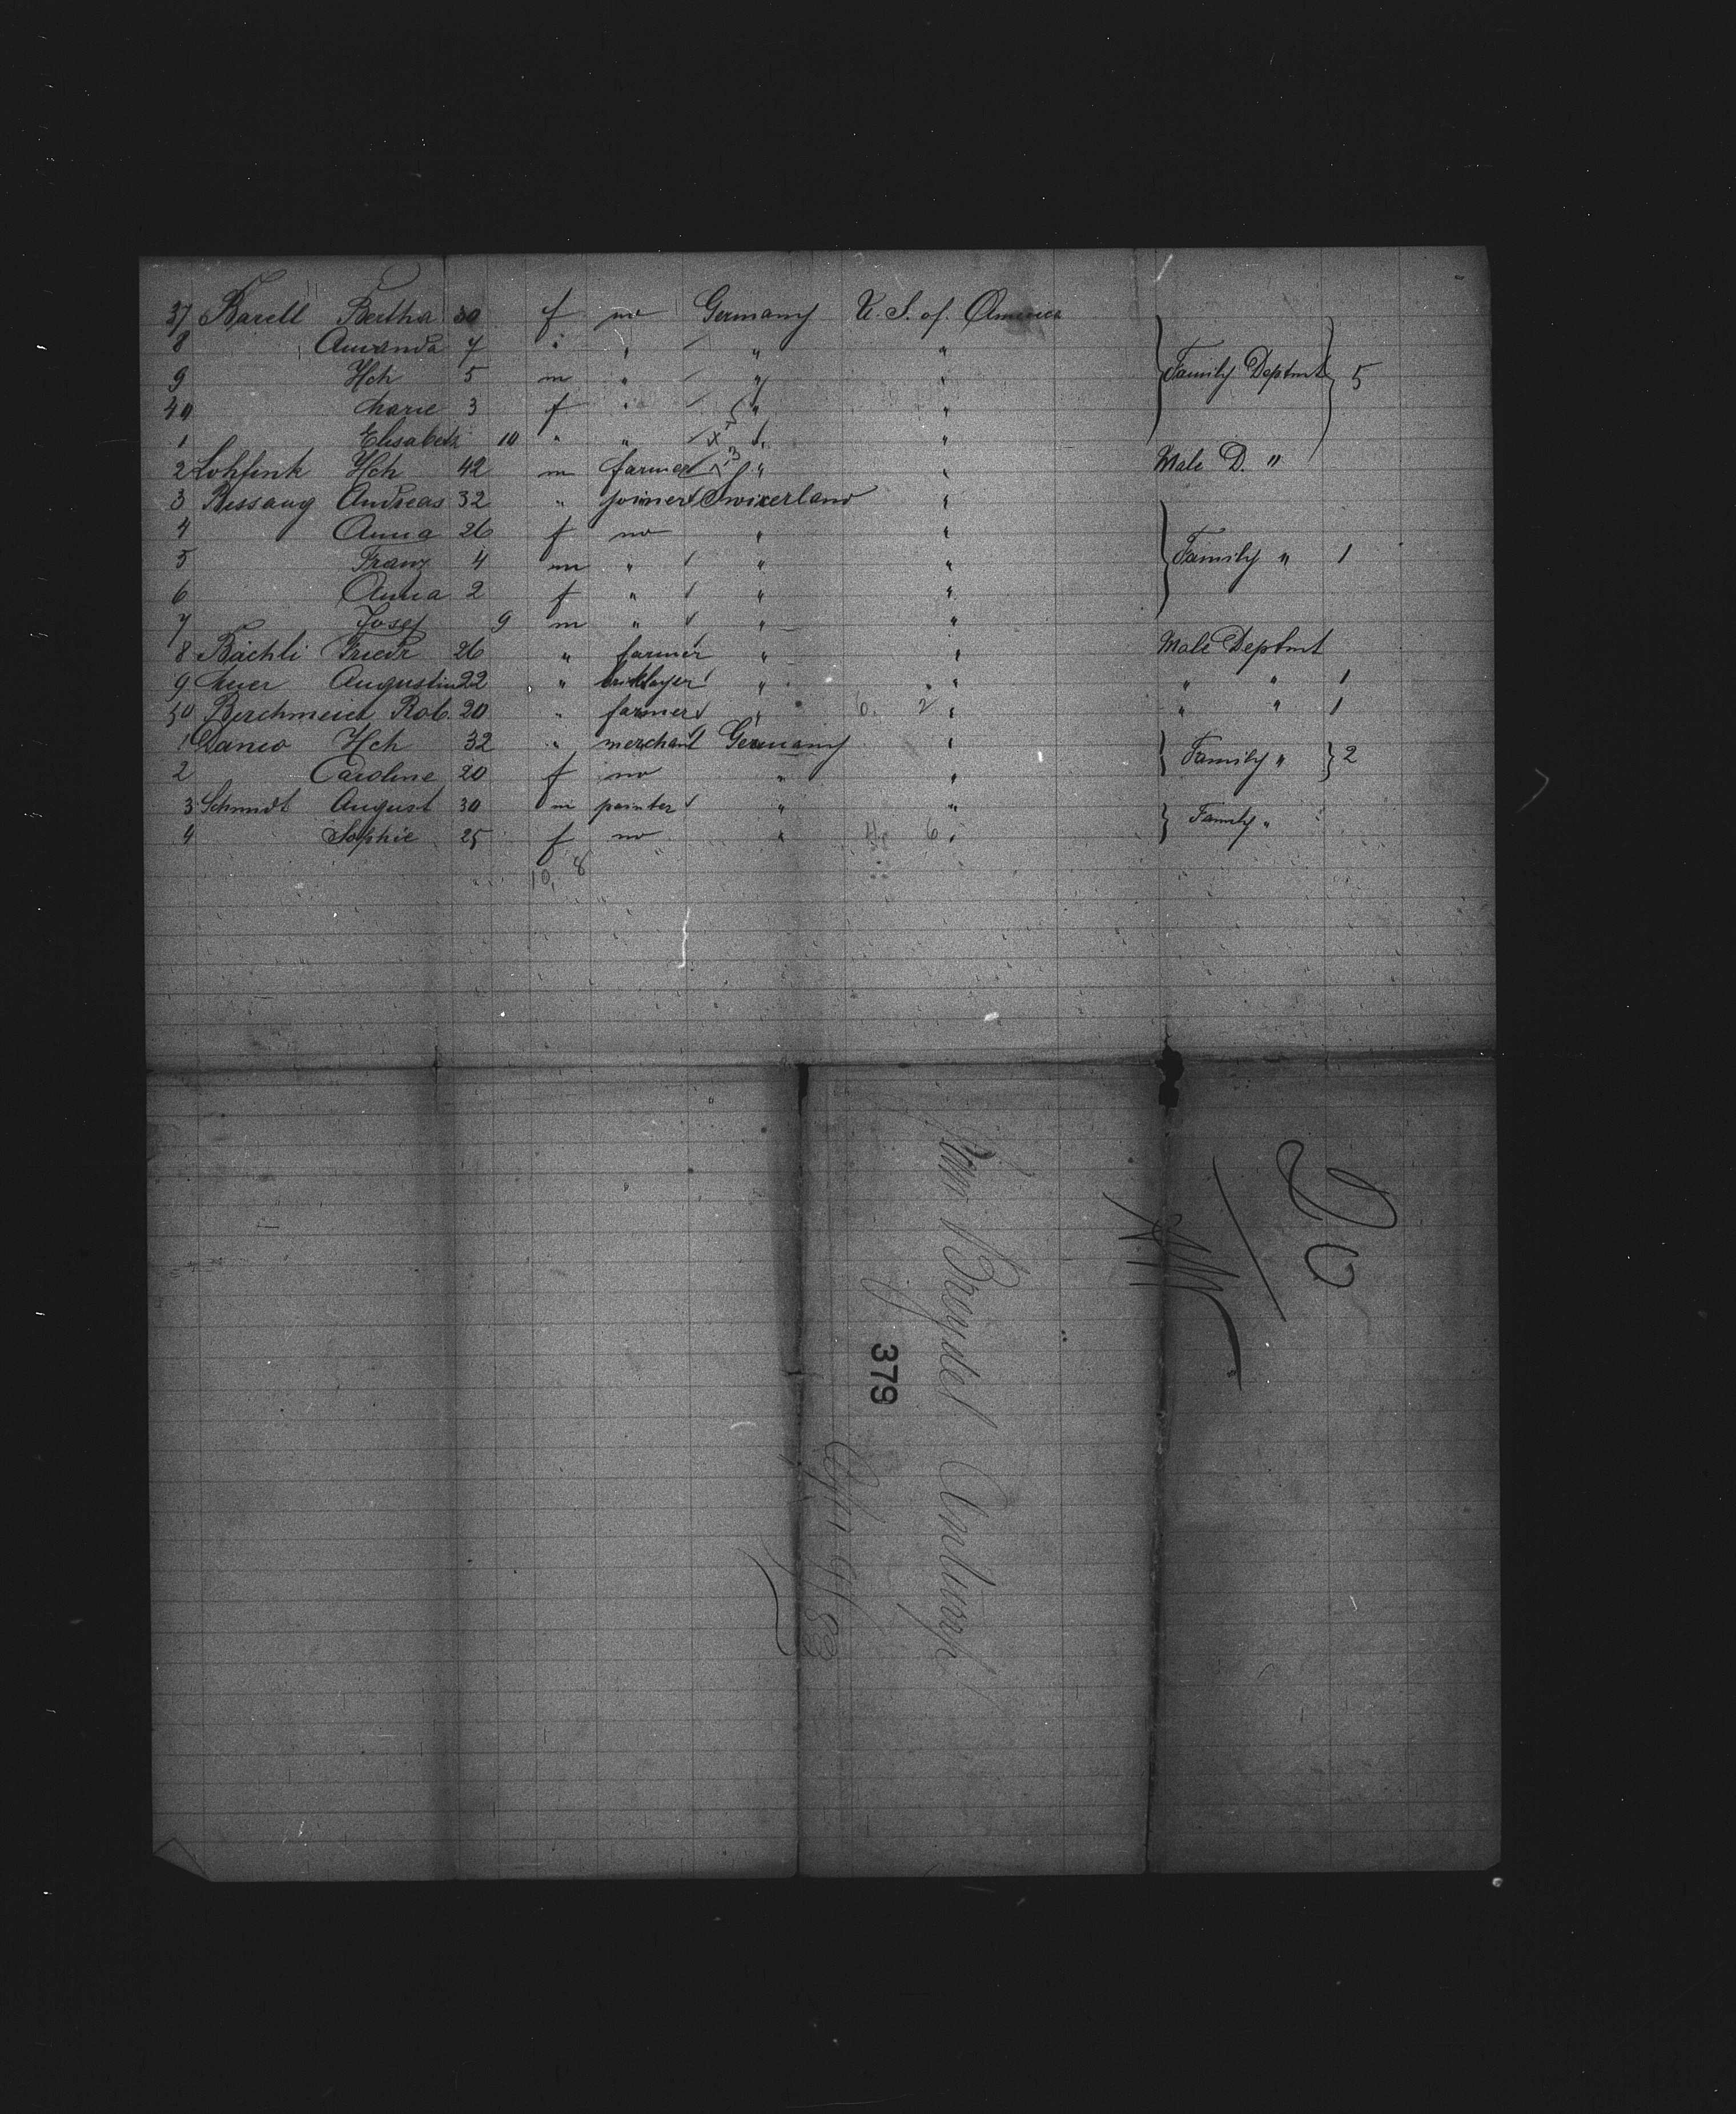 37 Barell Bertha 30 f no Germany U. S. of. America
8 Amanda 7 " " " "
9 Hch 5 m " " " Family Deptmt 5
40 Marie 3 f " " "
1 Elisabeth 10 " " "
2 Lohfink Hch 42 m farmer " " Male D. "
3 Bissang Andreas 32 " joiner Swizerland "
4 Anna 26 f no " "
5 Franz 4 m " " " Family " 1
6 Anna 2 f " " "
7 Josef 9 m " " "
8 Bächli Friedr 26 " farmer " " Male Deptmt
9 Meier Augustin 22 " bricklayer " " " " 1
50 Berchmeier Rob. 20 " farmer " " " " 1
1 Danco Hch 32 " merchant Germany " Family " 2
2 Caroline 20 f no " "
3 Schmidt August 30 m painter " " Family "
4 Sophie 25 f no " "
10, 8
379